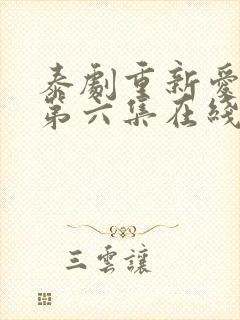 泰劇重新愛
第六集在綫
三雲讓